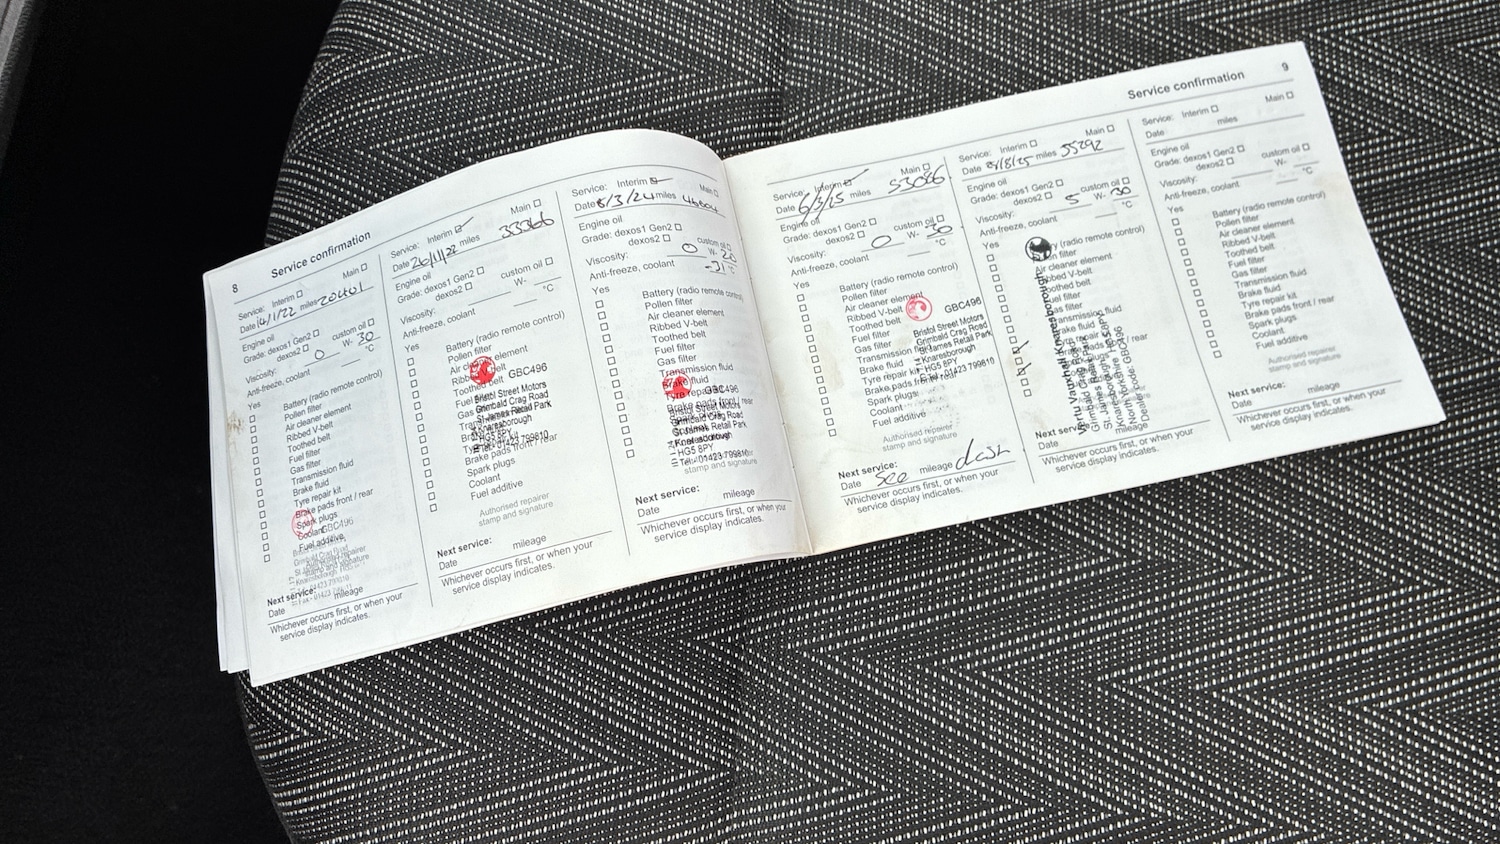 8
Service confirmation
Service: Interim Main
Date 14/1/22 miles 20401
Engine oil
Grade: dexos1 Gen2 custom oil
dexos2
Viscosity: 0 W- 30
Anti-freeze, coolant °C
Yes
Battery (radio remote control)
Pollen filter
Air cleaner element
Ribbed V-belt
Toothed belt
Fuel filter
Gas filter
Transmission fluid
Brake fluid
Tyre repair kit
Brake pads front / rear
Spark plugs
Coolant GBC496
Fuel additive
Next service:
Date mileage
Whichever occurs first, or when your
service display indicates.
Service: Interim Main
Date 26/11/22 miles 33366
Engine oil
Grade: dexos1 Gen2 custom oil
dexos2
Viscosity: W-
Anti-freeze, coolant °C
Yes
Battery (radio remote control)
Pollen filter
GBC496
Bristol Street Motors
Grimbald Crag Road
St James Retail Park
Knaresborough
HG5 8PY
Tel: 01423 799810
Brake pads front / rear
Spark plugs
Coolant
Fuel additive
Authorised repairer
stamp and signature
Next service:
Date mileage
Whichever occurs first, or when your
service display indicates.
Service: Interim Main
Date 5/3/24 miles
Engine oil
Grade: dexos1 Gen2
dexos2 custom oil
Viscosity: 0 W- 20
Anti-freeze, coolant -31 °C
Yes
Battery (radio remote control)
Pollen filter
Air cleaner element
Ribbed V-belt
Toothed belt
Fuel filter
Gas filter
Transmission fluid
Brake fluid
GBC496
Bristol Street Motors
Grimbald Crag Road
St James Retail Park
Knaresborough
HG5 8PY
Tel: 01423 799810
stamp and signature
Next service:
Date mileage
Whichever occurs first, or when your
service display indicates.
Service confirmation
9
Service: Interim Main
Date 6/3/25 miles 53086
Engine oil
Grade: dexos1 Gen2 custom oil
dexos2
Viscosity: 0 W- 30
Anti-freeze, coolant °C
Yes
Battery (radio remote control)
Pollen filter
Air cleaner element
Ribbed V-belt
Toothed belt
Fuel filter
Gas filter
Transmission fluid
Brake fluid
Tyre repair kit
Brake pads
Spark plugs
Coolant
Fuel additive
GBC496
Bristol Street Motors
Grimbald Crag Road
St James Retail Park
Knaresborough
HG5 8PY
Tel: 01423 799810
Authorised repairer
stamp and signature
Next service:
Date see mileage dash
Whichever occurs first, or when your
service display indicates.
Service: Interim Main
Date miles 55292
Engine oil
Grade: dexos1 Gen2 custom oil
dexos2
Viscosity: 5 W- 30
Anti-freeze, coolant °C
Yes
(radio remote control)
filter
Air cleaner element
Ribbed V-belt
Toothed belt
Fuel filter
Gas filter
Transmission fluid
Vertu Vauxhall Knaresborough
Grimbald Crag Road
St. James Retail Park
Knaresborough
North Yorkshire
Dealer Code: GBC496
Next service:
Date mileage
Whichever occurs first, or when your
service display indicates.
Service: Interim Main
Date miles
Engine oil
Grade: dexos1 Gen2 custom oil
dexos2
Viscosity: W-
Anti-freeze, coolant °C
Yes
Battery (radio remote control)
Pollen filter
Air cleaner element
Ribbed V-belt
Toothed belt
Fuel filter
Gas filter
Transmission fluid
Brake fluid
Tyre repair kit
Brake pads front / rear
Spark plugs
Coolant
Fuel additive
Authorised repairer
stamp and signature
Next service:
Date mileage
Whichever occurs first, or when your
service display indicates.